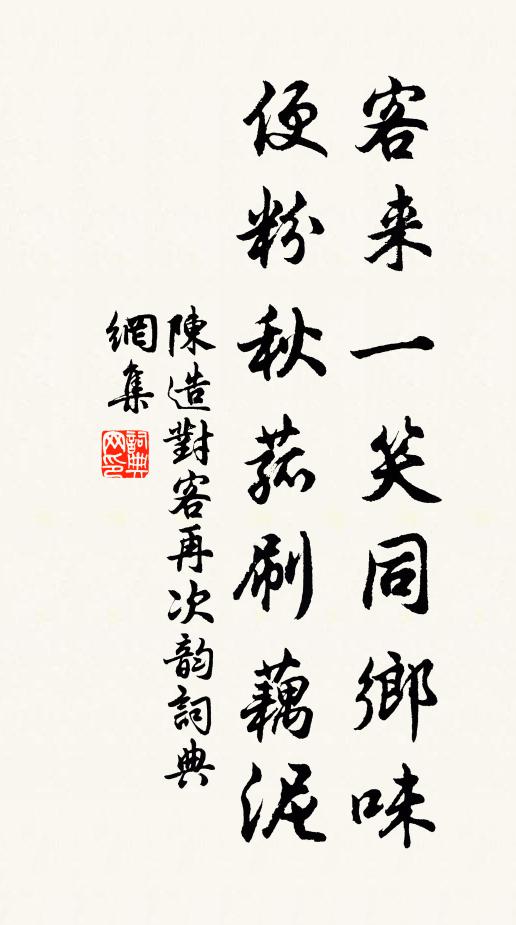 客来一笑同鄉味
便粉秋菰刷藕泥
陳造對客再次韵詞典
網集
詞典
网印